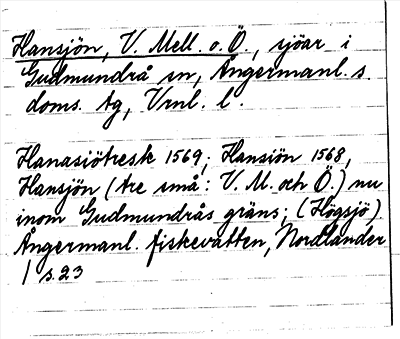 Hansjön, V. Mell. o. Ö., sjöar i
Gudmundrå sn, Ångermanl. s.
doms. tg, Vrnl. l.
Hanasiötresk 1569; Hansiön 1568,
Hansjön (tre små: V. M. och Ö.) nu
inom Gudmundrås gräns; (Högsjö)
Ångermanl. fiskevatten, Nordlander
1 s. 23